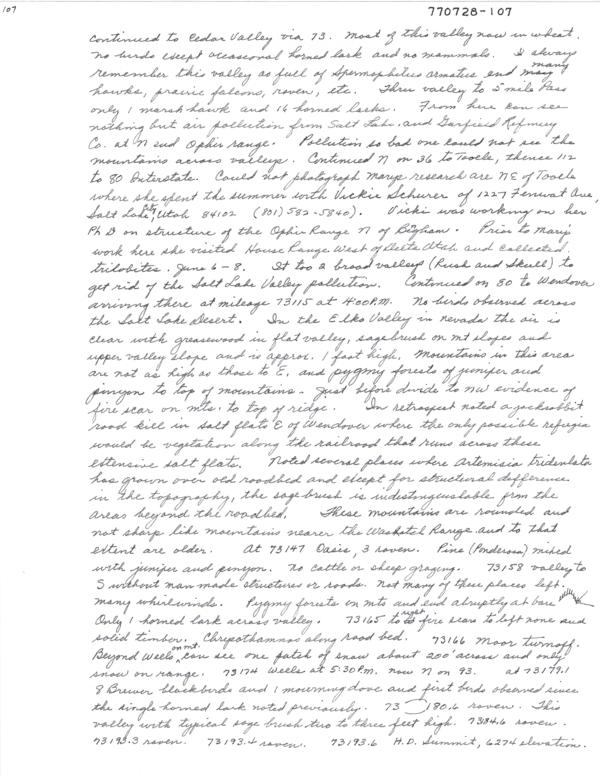 107
770728-107
Continued to Cedar Valley via 73. Most of this valley now in wheat.
No birds except occasional horned lark and no mammals. I always
remember this valley as full of Spermophilus armatus and many many
hawks, prairie falcons, raven, etc. Thru valley to 5 mile Pass
only 1 marsh hawk and 16 horned larks. From here can see
nothing but air pollution from Salt Lake and Garfield Refinery
Co. at N end Ophir range. Pollution so bad one could not see the
mountains across valleys. Continued N on 36 to Tooele, thence 112
to 80 Interstate. Could not photograph Marys research are NE of Tooele
where she spent the summer with Vickie Schurer of 1227 Ave,
Salt Lake City, Utah 84102 (801) 582-5840). Vicki was working on her
Ph D on structure of the Ophir Range N of Bigham. Prior to Marys
work here she visited House Range West of Delta Utah and collected
trilobites. June 6-8. It too 2 broad valleys (Rush and Skull) to
get rid of the Salt Lake Valley pollution. Continued on 80 to Wendover
arriving there at mileage 73115 at 4:00 P.M. No birds observed across
the Salt Lake Desert. In the Elko Valley in Nevada the air is
clear with greasewood in flat valley, sagebrush on mt slopes and
upper valley slope and is approx. 1 foot high. Mountains in this area
are not as high as those to E. and pygmy forests of juniper and
pinyon to top of mountains. Just before divide to NW evidence of
fire scar on mts. to top of ridge. In retrospect noted a jackrabbit
road kill in salt flats E of Wendover where the only possible refugia
would be vegetation along the railroad that runs across these
extensive salt flats. Noted several places where Artemisia tridentata
has grown over old roadbed and except for structural difference
in the topography, the sage brush is indistinguishable from the
areas beyond the roadbed. These mountains are rounded and
not sharp like mountains nearer the Wasatch Range and to that
extent are older. At 73147 Oasis, 3 raven. Pine (Ponderosa) mixed
with juniper and pinyon. No cattle or sheep grazing. 73158 valley to
S without man made structures or roads. Not many of these places left.
Many whirlwinds. Pygmy forests on mts and end abruptly at base
Only 1 horned lark across valley. 73165 to right fire scars to left none and
solid timber. Chrysothamnos along road bed. 73166 Moor turnoff.
Beyond Wells on mt. can see one patch of snow about 200' across and only
snow on range. 73174 Wells at 5:30 P.M. now N on 93. at 73179.1
8 Brewer blackbirds and 1 mourning dove and first birds observed since
the single horned lark noted previously. 73 180.6 raven. This
valley with typical sage brush two to three feet high. 7384.6 raven.
73193.3 raven. 73193.4 raven. 73193.6 H.D. Summit, 6274 elevation.